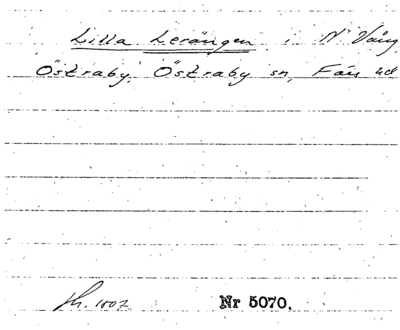 Lilla Lerängen i N Vång
Östraby, Östraby sn, Färs hd
1807. Nr 5070.